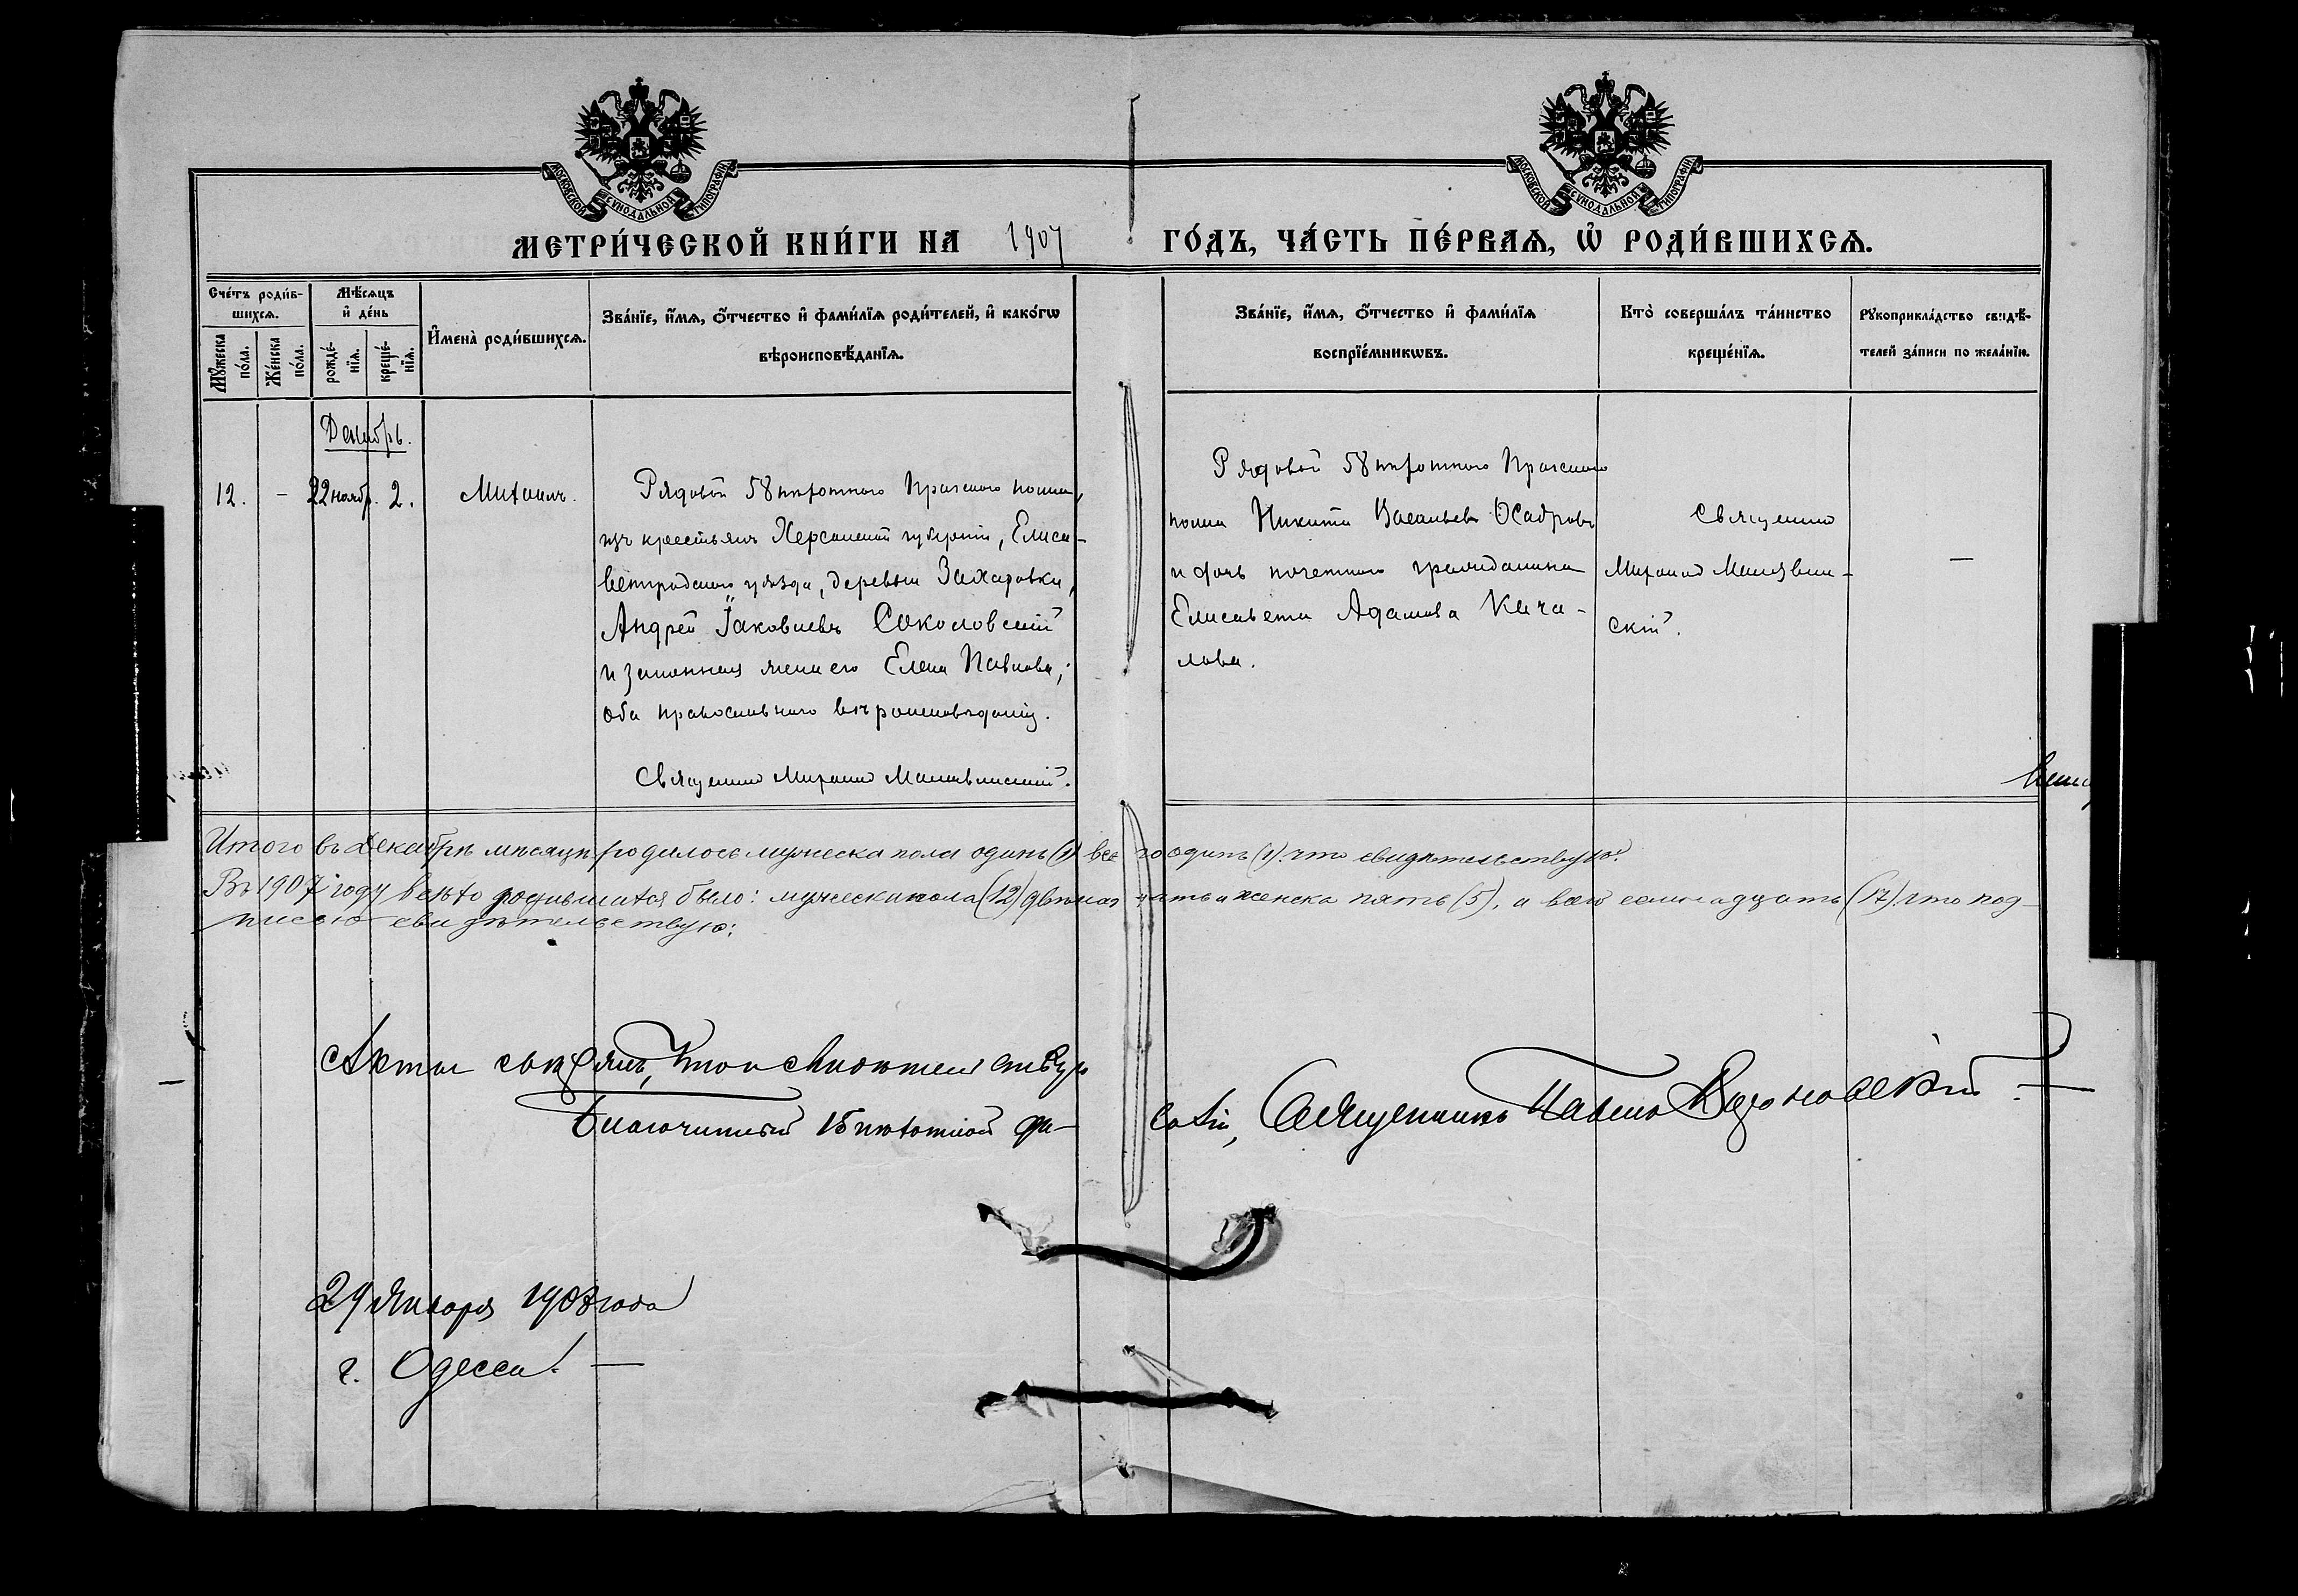 МОСКОВСКОЙ СѴНОДАЛЬНОЙ ТИПОГРАФІИ
МОСКОВСКОЙ СѴНОДАЛЬНОЙ ТИПОГРАФІИ
МЕТРИ́ЧЕСКОЙ КНИ́ГИ НА 1907 ГО́ДЪ, ЧА́СТЬ ПЕ́РВАѦ, Ѡ҆ РОДИ́ВШИХСѦ.
Сче́тъ роди́вшихсѧ.
Мꙋ́жеска по́ла.
Же́нска по́ла.
Мѣ́сѧцъ и҆ де́нь
рожде́нїѧ.
креще́нїѧ.
И҆мена̀ роди́вшихсѧ.
Зва́нїе, и҆́мѧ, ѻ҆́тчество и҆ фами́лїѧ роди́телей, и҆ како́гѡ
вѣроисповѣ́данїѧ.
Зва́нїе, и҆́мѧ, ѻ҆́тчество и҆ фами́лїѧ
воспрїе́мникѡвъ.
Кто̀ соверша́лъ та́инство
креще́нїѧ.
Рꙋкоприкла́дство свидѣ́-
телей за́писи по жела́нїю.
Декабрь.
12. - 22 ноябр. 2. Михаилъ.
Рядовой 58 пѣхотнаго Пражскаго полка,
изъ крестьянъ Херсонской губерніи, Елиса-
ветградскаго уѣзда, деревни Захаровки,
Андрей Іаковлевъ Соколовскій
и законная жена его Елена Павлова;
оба православнаго вѣроисповѣданія.
Священникъ Мирошниковъ
Рядовой 58 пѣхотнаго Пражскаго
полка Никита Васильевъ
и дочь почетнаго гражданина
Елисавета Адамова Кача-
лова.
Священникъ
скій.
—
Итого въ Декабрѣ мѣсяцѣ родилось мужеска пола одинъ (1) всего одинъ (1). что свидѣтельствую:
Въ 1907 году всѣхъ родившихся было: мужеска пола (12) двѣнадцать и женска пять (5), а всего семнадцать (17). что под-
писью свидѣтельствую:
Акты свидѣтельствую
Благочинный 15 пѣхотной ди-
визіи, Священникъ Павелъ
29 Января 1908 года
г. Одесса. —